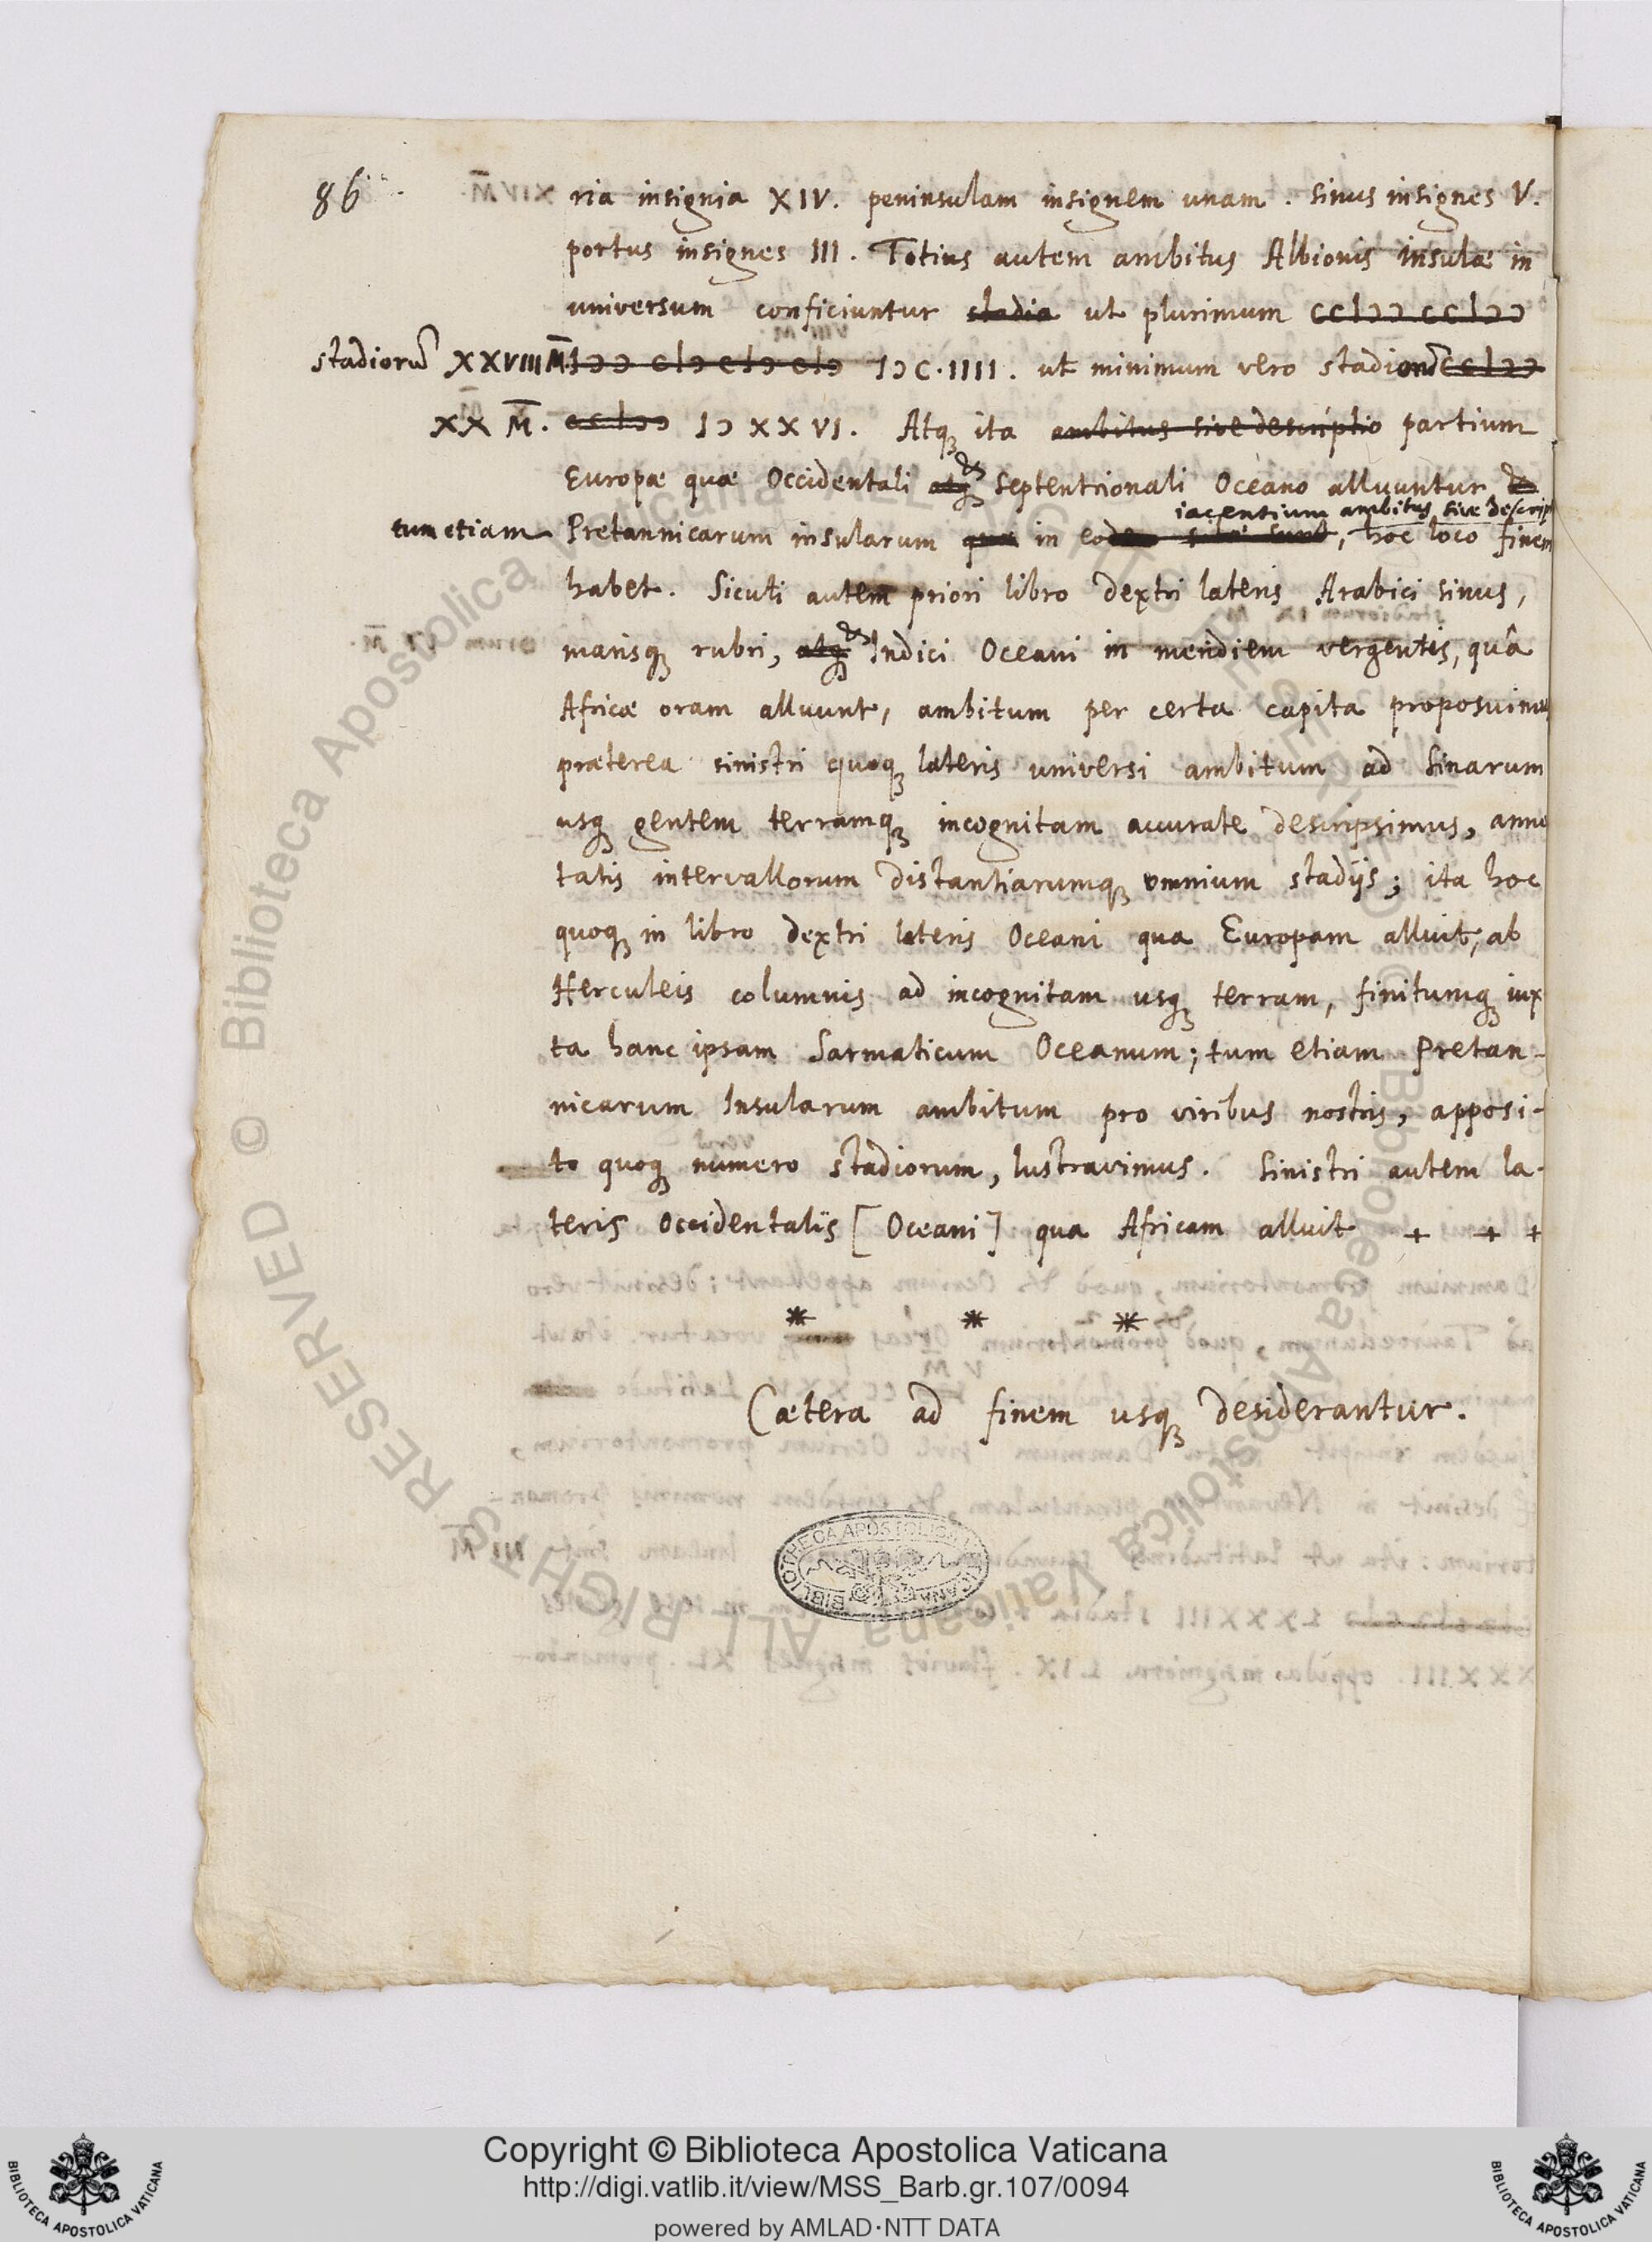 86
ria insignia XIV. peninsulam insignem unam. sinus insignes V.
portus insignes III. Totius autem ambitus Albionis insulæ in
universum conficiuntur stadia ut plurimum ccIↄↄ ccIↄↄ
stadiorū XXVIII M̅. Iↄↄ cIↄ cIↄ cIↄ IↃC.IIII. ut minimum vero stadiorū ccIↄↄ
XX M̅. ccIↄↄ IↃXXVI. Atq; ita ambitus sive descriptio partium
Europæ quæ Occidentali atq; & Septentrionali Oceano alluuntur &
iacentium ambitus, sive descrip
tum etiam Pretannicarum insularum quæ in eodem sunt, hoc loco finem
habet. Sicuti autem priori libro dextri lateris Arabici sinus,
marisq; rubri, atq; & Indici Oceani in meridiem vergentis, quâ
Africæ oram alluunt, ambitum per certa capita proposuimus
præterea sinistri quoq; lateris universi ambitum ad Sinarum
usq; gentem terramq; incognitam accurate descripsimus, anno
tatis intervallorum distantiarumq; omnium stadijs; ita hoc
quoq; in libro dextri lateris Oceani qua Europam alluit, ab
Herculeis columnis ad incognitam usq; terram, finitumq; iux
ta hanc ipsam Sarmaticum Oceanum; tum etiam Pretan-
nicarum Insularum ambitum pro viribus nostris, apposi-
to quoq; numero stadiorum, lustravimus. Sinistri autem la-
teris Occidentalis [Oceani] qua Africam alluit + + +
* * *
Cætera ad finem usq; desiderantur.
BIBLIOTHECA APOSTOLICA VATICANA
© Biblioteca Apostolica Vaticana ALL RIGHTS RESERVED
Copyright © Biblioteca Apostolica Vaticana
http://digi.vatlib.it/view/MSS_Barb.gr.107/0094
powered by AMLAD·NTT DATA
BIBLIOTECA APOSTOLICA VATICANA
BIBLIOTECA APOSTOLICA VATICANA